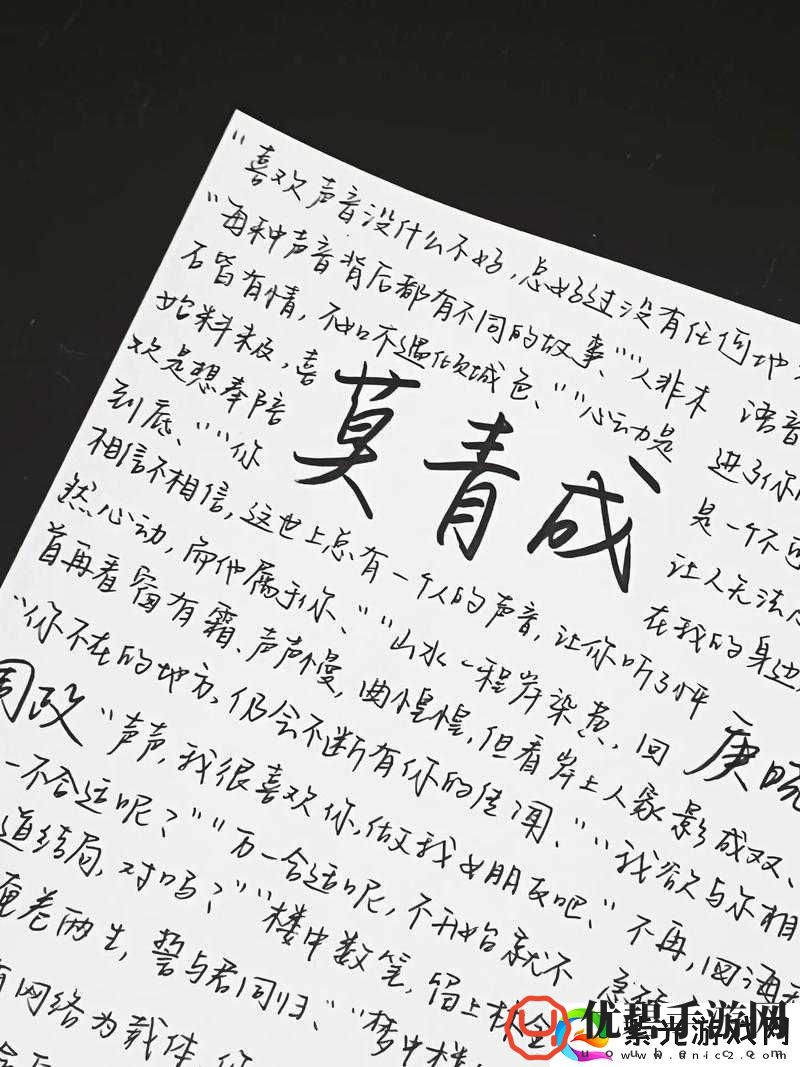 "喜欢声音没什么不好,总好过没有任何地
"每种声音背后都有不同的故事、""人非木 语音
石皆有情,不如不遇倾城色、""心动是 进了你
始料未及,喜 是一个不可
欢是想奉陪 让人无法
到底、""你 在我的身边
莫青成
相信不相信,这世上总有一个人的声音,让你听了怦
然心动,而他属于你、""山水一程岸染黄,回
首再看窗有霜、声声慢,曲惶惶,但看岸上人家影成双、
"你不在的地方,仍会不断有你的佳闻、""我欲与尔相
周政
"声声,我很喜欢你,做我女朋友吧、"不再,回海
庚
一不合适呢?""万一合适呢,不开始就不
道结局,对吗?""楼中数笔,留上枕
画卷两生,誓与君同归、""梦中楼
有网络为载体,你
优玛手游网
youubb.com
紫光游戏网
www.enic2.com